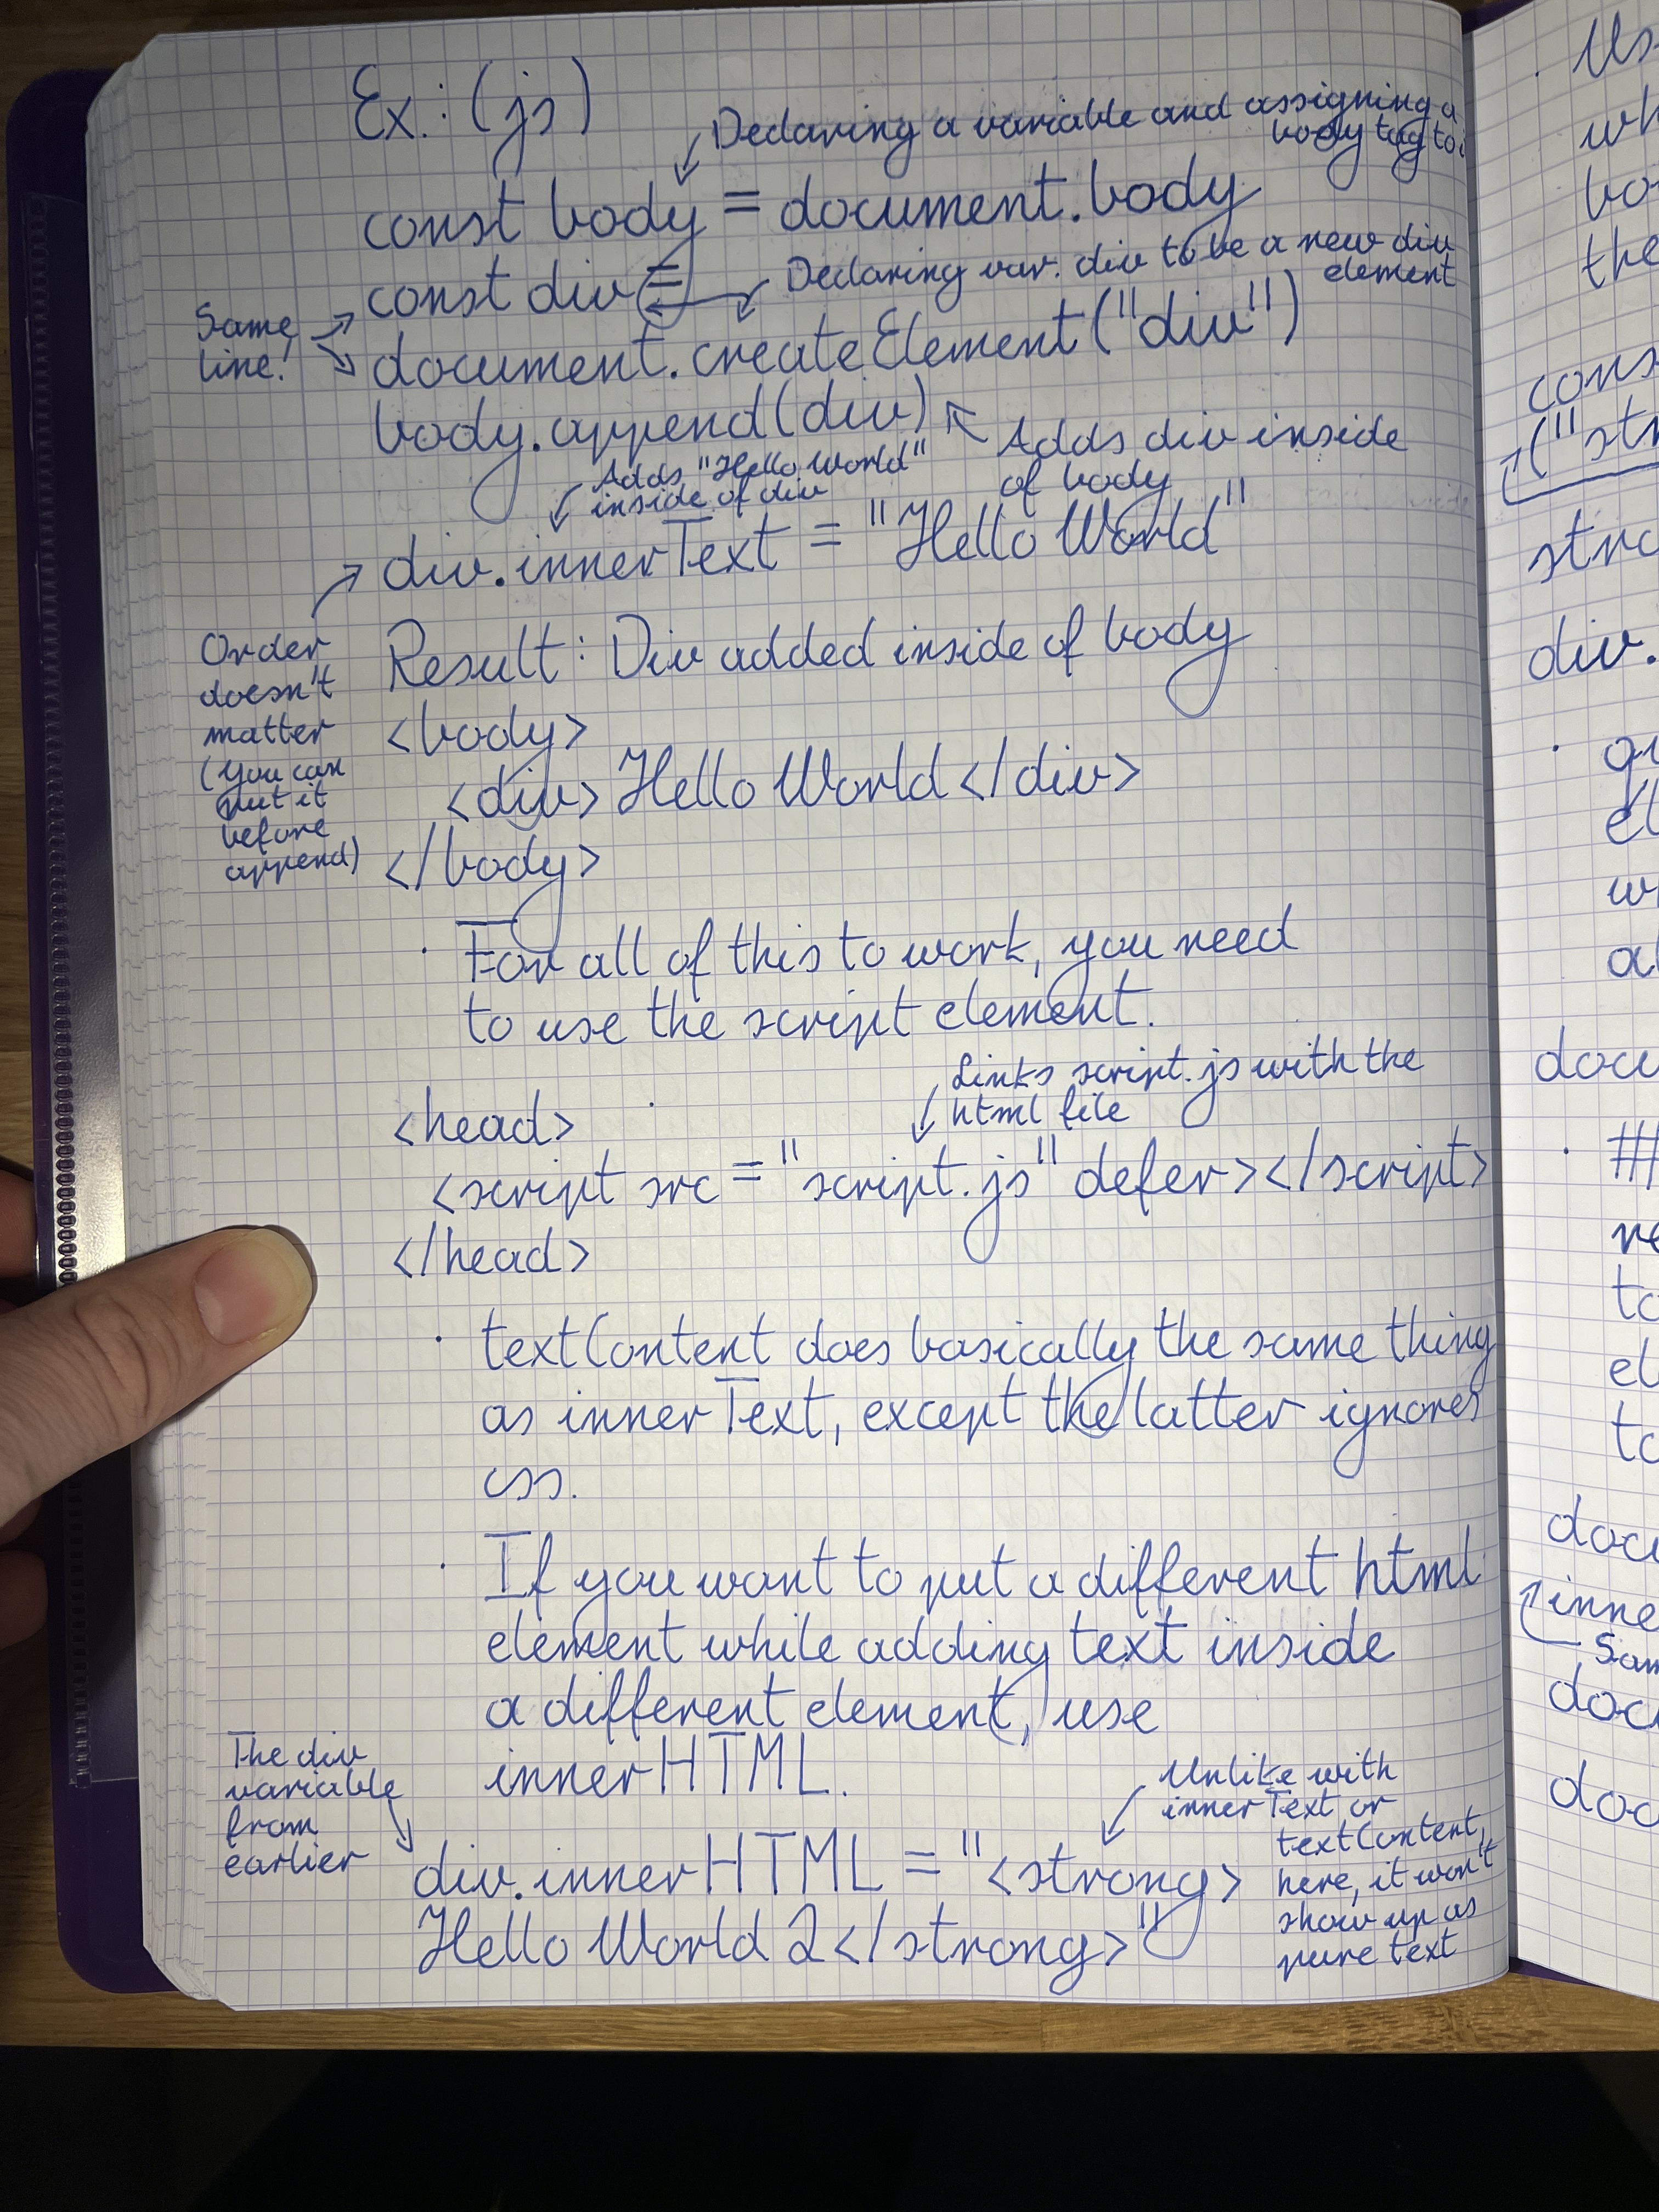 Ex.: (js)
Declaring a variable and assigning a
body tag to
const body = document.body
Declaring var. div to be a new div
element
const div =
Same
line!
document.createElement("div")
body.append(div)
Adds div inside
of body
Adds "Hello World"
inside of div
div.innerText = "Hello World"
Order
doesn't
matter
(you can
put it
before
append)
Result: Div added inside of body
<body>
<div>Hello World</div>
</body>
· For all of this to work, you need
to use the script element.
Links script.js with the
html file
<head>
<script src="script.js" defer></script>
</head>
· textContent does basically the same thing
as innerText, except the latter ignores
css.
· If you want to put a different html
element while adding text inside
a different element, use
innerHTML.
The div
variable
from
earlier
Unlike with
innerText or
textContent,
here, it won't
show up as
pure text
div.innerHTML = "<strong>
Hello World 2</strong>"
the
("str
div.
·
inne